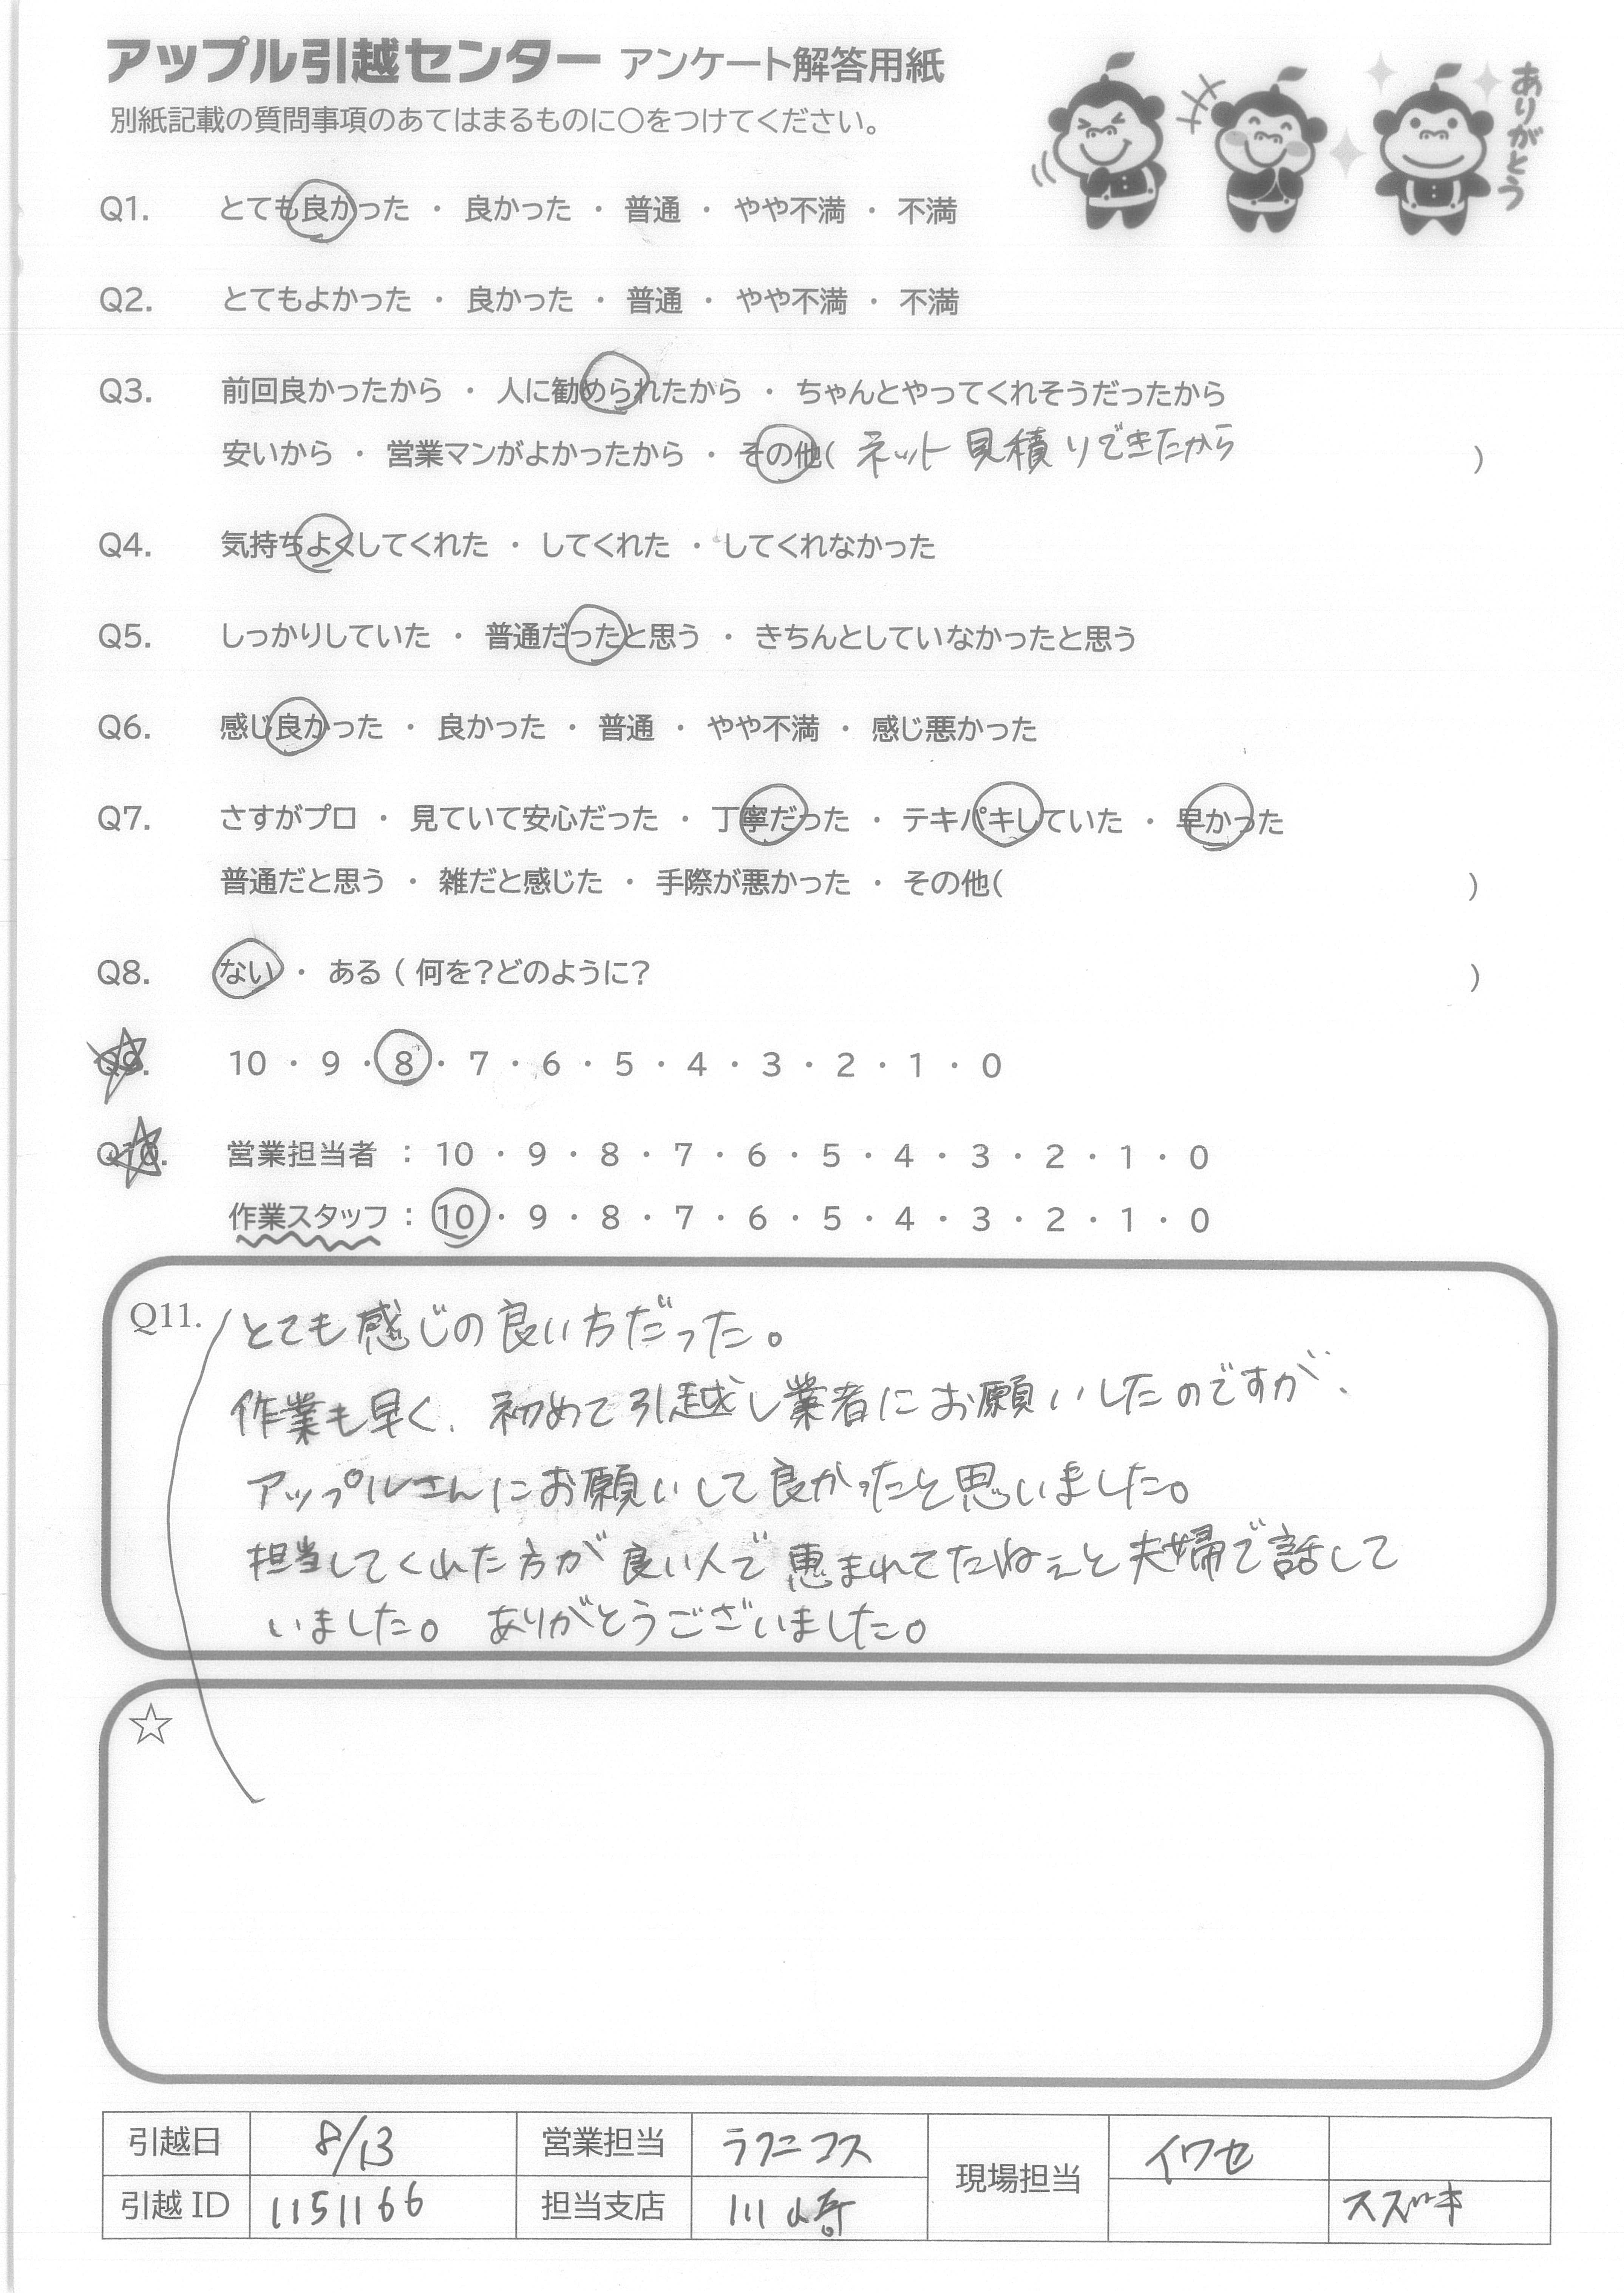 アップル引越センター アンケート解答用紙
別紙記載の質問事項のあてはまるものに〇をつけてください。
ありがとう
Q1. とても良かった ・ 良かった ・ 普通 ・ やや不満 ・ 不満
Q2. とてもよかった ・ 良かった ・ 普通 ・ やや不満 ・ 不満
Q3. 前回良かったから ・ 人に勧められたから ・ ちゃんとやってくれそうだったから
安いから ・ 営業マンがよかったから ・ その他( ネット見積りできたから )
Q4. 気持ちよくしてくれた ・ してくれた ・ してくれなかった
Q5. しっかりしていた ・ 普通だったと思う ・ きちんとしていなかったと思う
Q6. 感じ良かった ・ 良かった ・ 普通 ・ やや不満 ・ 感じ悪かった
Q7. さすがプロ ・ 見ていて安心だった ・ 丁寧だった ・ テキパキしていた ・ 早かった
普通だと思う ・ 雑だと感じた ・ 手際が悪かった ・ その他( )
Q8. ない ・ ある ( 何を?どのように? )
Q9. 10 ・ 9 ・ 8 ・ 7 ・ 6 ・ 5 ・ 4 ・ 3 ・ 2 ・ 1 ・ 0
Q10. 営業担当者 : 10 ・ 9 ・ 8 ・ 7 ・ 6 ・ 5 ・ 4 ・ 3 ・ 2 ・ 1 ・ 0
作業スタッフ : 10 ・ 9 ・ 8 ・ 7 ・ 6 ・ 5 ・ 4 ・ 3 ・ 2 ・ 1 ・ 0
Q11. とても感じの良い方だった。
作業も早く、初めて引越し業者にお願いしたのですが、
アップルさんにお願いして良かったと思いました。
担当してくれた方が良い人で恵まれてたねぇと夫婦で話して
いました。ありがとうございました。
☆
引越日 8/13 営業担当 現場担当 イワセ
引越ID 1151166 担当支店 川崎 スズキ